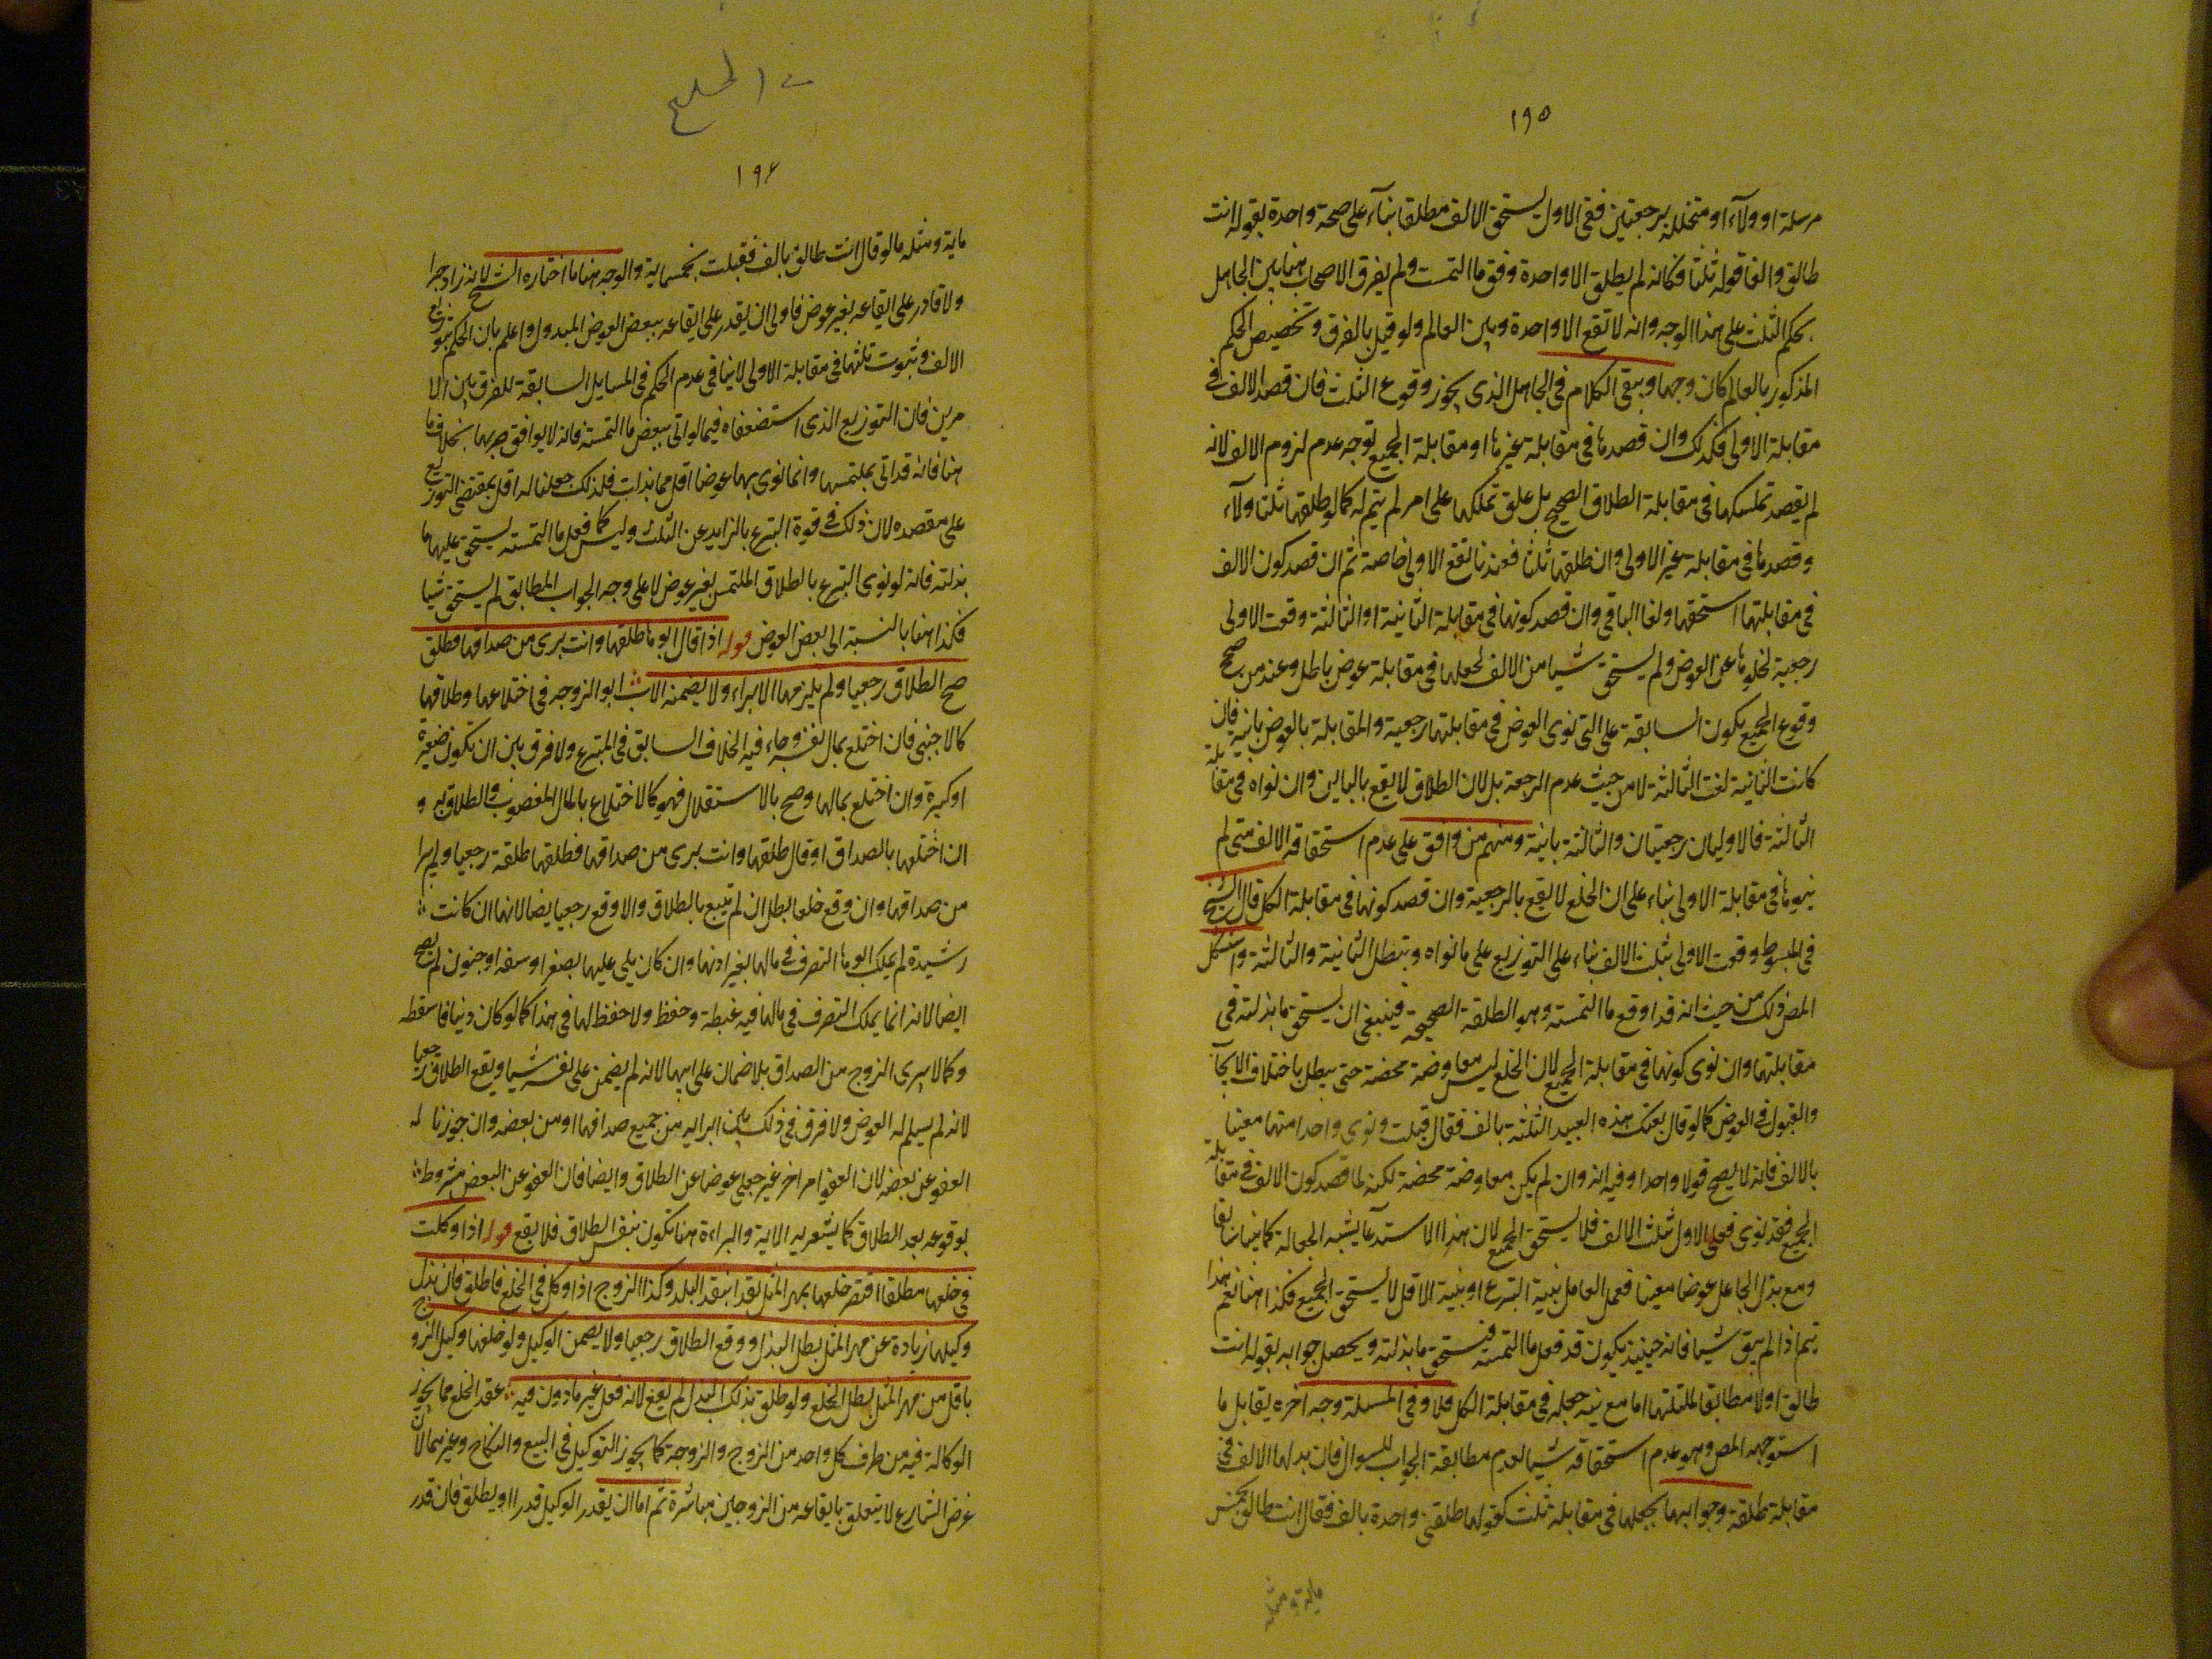 ١٩٥
مرسلة او ولآء او متخللة برجعتين ففى الاول يستحق الالف مطلقا بناء على صحة واحدة بقوله انت
طالق والغا قوله ثلثا فكانه لم يطلق الا واحدة وفق ما التمست ولم يفرق الاصحاب هنا بين الجاهل
بحكم الثلث على هذا الوجه وانه لا تقع الا واحدة وبين العالم ولو قيل بالفرق وتخصيص الحكم
المذكور بالعالم كان وجها ويبقى الكلام فى الجاهل الذى يجوز وقوع الثلث فان قصد الالف فى
مقابلة الاولى فكذلك وان قصدها فى مقابلة غيرها او مقابلة الجميع توجه عدم لزوم الالف لانه
لم يقصد تملكها فى مقابلة الطلاق الصحيح بل علق تملكها على امر لم يتم له كما لو طلقها ثلثا ولآء
وقصدها فى مقابلة غير الاولى وان طلقها ثلثا فعندنا تقع الاولى خاصة ثم ان قصد كون الالف
فى مقابلتها استحقها ولغا الباقى وان قصد كونها فى مقابلة الثانية او الثالثة وقعت الاولى
رجعية لخلوها عن العوض ولم يستحق شيئا من الالف لجعلها فى مقابلة عوض باطل وعند من صحح
وقوع الجميع يكون السابقة على التى نوى العوض فى مقابلتها رجعية والمقابلة بالعوض باينة فان
كانت الثانية لغت الثالثة لا من حيث عدم الرجعة بل لان الطلاق لا يقع بالباين وان نواه فى مقابلة
الثالثة فالاوليان رجعيتان والثالثة باينة ومنهم من وافق على عدم استحقاقه الالف متى لم
ينوها فى مقابلة الاولى بناء على ان الخلع لا يقع بالرجعية وان قصد كونها فى مقابلة الكل قال الشيخ
فى المبسوط وقعت الاولى بثلث الالف بناء على التوزيع على ما نواه وتبطل الثانية والثالثة واشكل
المص ذلك من حيث انه قد اوقع ما التمسته وهو الطلقة الصحيحة فينبغى ان يستحق ما بذلته فى
مقابلتها وان نوى كونها فى مقابلة الجميع لان الخلع ليس معاوضة محضة حتى يبطل باختلاف الايجا
والقبول فى العوض كما لو قال بعتك هذه العبيد الثلثة بالف فقال قبلت ونوى واحدا منها معينا
بالالف فانه لا يصح قولا واحدا وفيه انه وان لم يكن معاوضة محضة لكنه لما قصد كون الالف فى مقابلة
الجميع فقد نوى فعلى الاول ثلث الالف فلا يستحق الجميع لان هذا الاستدعآ يشبه الجعالة كما بيناه سابقا
ومع بذل الجاعل عوضا معينا فعمل العامل بنية التبرع او بنية الاقل لا يستحق الجميع فكذا هنا نعم هذا
يتم اذا لم يبق شيئا فانه حينئذ يكون قد فعل ما التمسته فيستحق ما بذلته ويحصل جوابه بقوله انت
طالق اولا مطابقا لمثلتها اما مع نية جعله فى مقابلة الكل فلا وفى المسئلة وجه اخر يقابل ما
استوجهه المص وهو عدم استحقاقه شيئا لعدم مطابقة الجواب للسوال فان بذلها الالف فى
مقابلة طلقة وجوابها بجعلها فى مقابلة ثلث كقولها طلقنى واحدة بالف فقال انت طالق بخمس
ماية ومثله
الخلع
١٩٦
ماية ومثله ما لو قال انت طالق بالف فقبلت بخمسماية والوجه هنا ما اختاره الشيخ لانه زاد جرا
ولا قادر على ايقاعه بغير عوض فاولى ان يقدر على ايقاعه ببعض العوض المبذول واعلم بان الحكم بتوزيع
الالف وثبوت ثلثها فى مقابلة الاولى لا ينافى عدم الحكم فى المسايل السابقة للفرق بين الا
مرين فان التوزيع الذى استضعفاه فيما لو اتى ببعض ما التمسته فانه لا يوافق بخلاف ما
هنا فانه قد اتى بملتمسها وانما نوى بها عوضا اقل مما بذلت فلذلك جعلنا له اقل بمقتضى التوزيع
على مقصده لان ذلك فى قوة التبرع بالزايد عن الثلث وليس كلما فعل ما التمسته يستحق عليها ما
بذلته فانه لو نوى التبرع بالطلاق الملتمس بغير عوض لا على وجه الجواب المطابق لم يستحق شيئا
فكذا هنا بالنسبة الى بعض العوض قوله اذا قال ابوها طلقها وانت برى من صداقها فطلق
صح الطلاق رجعيا ولم يلزمها الابراء ولا يضمنه الاب ؞ ابو الزوجه فى اختلاعها وطلاقها
كالاجنبى فان اختلع بمال نفسه جاء فيه الخلاف السابق فى المتبرع ولا فرق بين ان تكون صغيرة
او كبيرة وان اختلع بمالها وصرح بالاستقلال فهو كالاختلاع بالمال المغصوب والطلاق به و
ان اختلعها بالصداق او قال طلقها وانت برى من صداقها فطلقها طلقة رجعيا ولم يبرا
من صداقها وان وقع خلعا بطل ان لم يتبع بالطلاق والا وقع رجعيا ايضا لانها ان كانت ؞
رشيدة لم يملك ابوها التصرف فى مالها بغير اذنها وان كان يلى عليها بصغر او سفه او جنون لم يصح
ايضا لانه انما يملك التصرف فى مالها فيه غبطة وحفظ ولا حفظ لها فى هذا كما لو كان دينا فاسقطه
وكما لا يبرى الزوج من الصداق بلا ضمان على ابيها لانه لم يضمن على نفسه شيئا ويقع الطلاق رجعيا
لانه لم يسلم له العوض ولا فرق فى ذلك بين ابرايه من جميع صداقها او من بعضه وان جوزنا له
العفو عن بعضه لان العفو امر اخر غير جعله عوضا عن الطلاق وايضا فان العفو عن البعض مشروط ؞
بوقوعه بعد الطلاق كما يشعر به الاية والبراءة هنا تكون بنفس الطلاق فلا يقع قوله اذا وكلت
فى خلعها مطلقا اقتضى خلعها بمهر المثل نقدا بنقد البلد وكذا الزوج اذا وكل فى الخلع فاطلق فان بذل
وكيلها زيادة عن مهر المثل بطل البذل ووقع الطلاق رجعيا ولا يضمن الوكيل ولو خلعها وكيل الزوج
باقل من مهر المثل بطل الخلع ولو طلق بذلك البذل لم يقع لانه فعل غير ماذون فيه ؞ عقد الخلع مما يجوز
الوكالة فيه من طرف كل واحد من الزوج والزوجة كما يجوز التوكيل فى البيع والنكاح وغيرهما لان
غرض الشارع لا يتعلق بايقاعه من الزوجين مباشرة ثم اما ان يقدر الوكيل قدرا او يطلق فان قدر